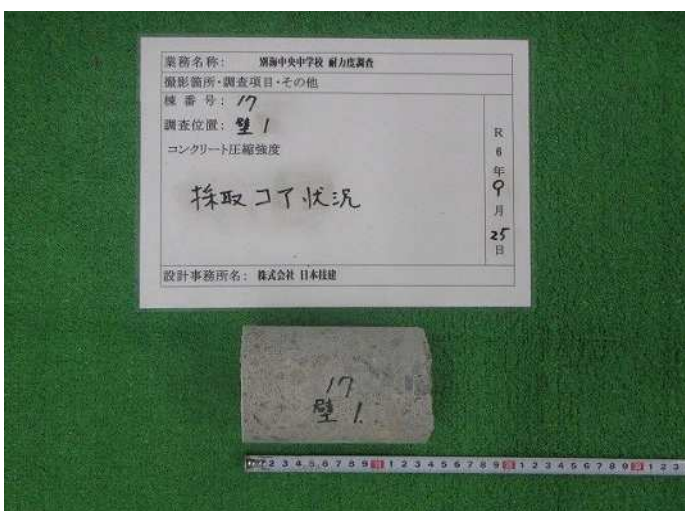 業務名称: 別海中央中学校 耐力度調査
撮影箇所・調査項目・その他
棟番号: 17
調査位置: 壁1
コンクリート圧縮強度
採取コア状況
R
6
年
9
月
25
日
設計事務所名: 株式会社 日本技建
17
壁1.
2 3 4 5 6 7 8 9 10 1 2 3 4 5 6 7 8 9 20 1 2 3 4 5 6 7 8 9 30 1 2 3